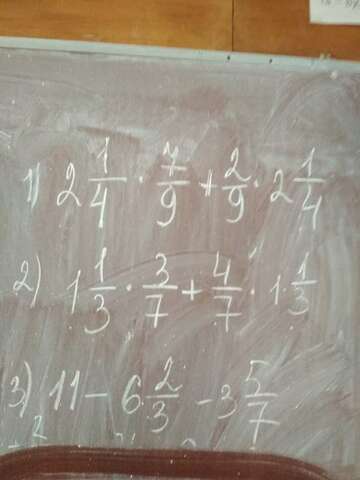 1) 2 1/4 · 7/9 + 2/9 · 2 1/4
2) 1 1/3 · 3/7 + 4/7 · 1 1/3
3) 11 - 6 2/3 - 3 5/7